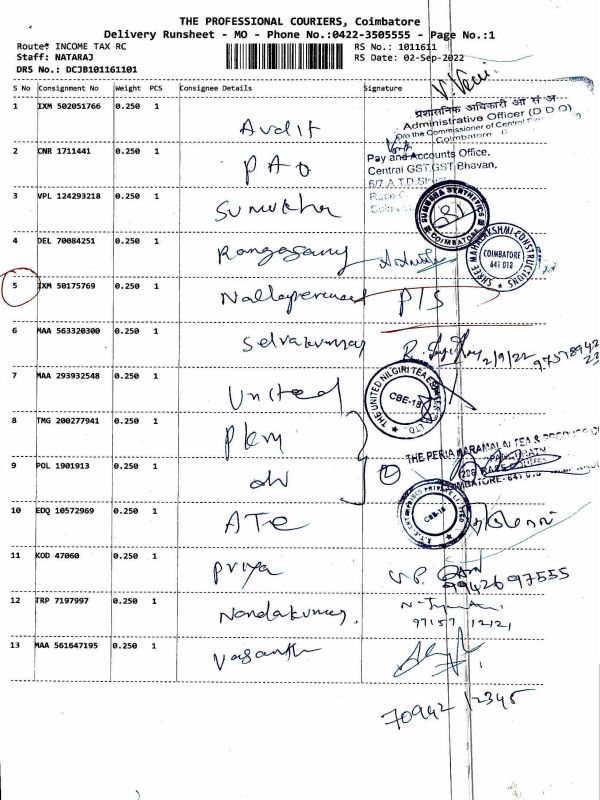 THE PROFESSIONAL COURIERS, Coimbatore
Delivery Runsheet - MO - Phone No.:0422-3505555 - Page No.:1
Route: INCOME TAX RC
RS No.: 1011611
Staff: NATARAJ
RS Date: 02-Sep-2022
DRS No.: DCJB101161101
S No Consignment No Weight PCS Consignee Details Signature
1 IXM 502051766 0.250 1
Audit
प्रशासनिक अधिकारी
Administrative Officer (D D O)
O/o the Commissioner of Central
Coimbatore
2 CNR 1711441 0.250 1
PAO
Pay and Accounts Office,
Central GST,GST Bhavan,
6/7,A.T.D.
3 VPL 124293218 0.250 1
Sumukha
SUMUKHA SYNTHETICS
COIMBATORE
4 DEL 70084251 0.250 1
Rangasamy
SHREE MAHALAKSHMI CONSTRUCTIONS
COIMBATORE
641 018
5 IXM 50175769 0.250 1
P/S
6 MAA 563320300 0.250 1
Selvakumar
2/9/22
7 MAA 293932548 0.250 1
United
THE UNITED NILGIRI TEA ESTATES
LTD.
CBE-18
8 TMG 200277941 0.250 1
PKM
9 POL 1901913 0.250 1
THE PERIA KARAMALAI TEA & PRODUCE
COIMBATORE-641 018
10 EDQ 10572969 0.250 1
ATE
CBE-18
11 KOD 47060 0.250 1
Priya
9942697555
12 TRP 7197997 0.250 1
Nandakumar.
97157 12121
13 MAA 561647195 0.250 1
Vasanth
70942 12345